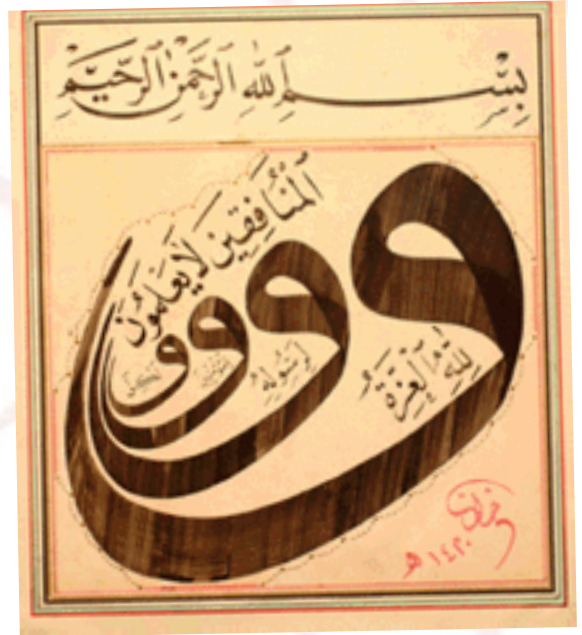 بِسْمِ اللهِ الرَّحْمٰنِ الرَّحِيمِ
وَلِلّٰهِ الْعِزَّةُ
وَلِرَسُولِهِ
وَلِلْمُؤْمِنِينَ
وَلٰكِنَّ
الْمُنَافِقِينَ لَا يَعْلَمُونَ
١٤٢٠ هـ